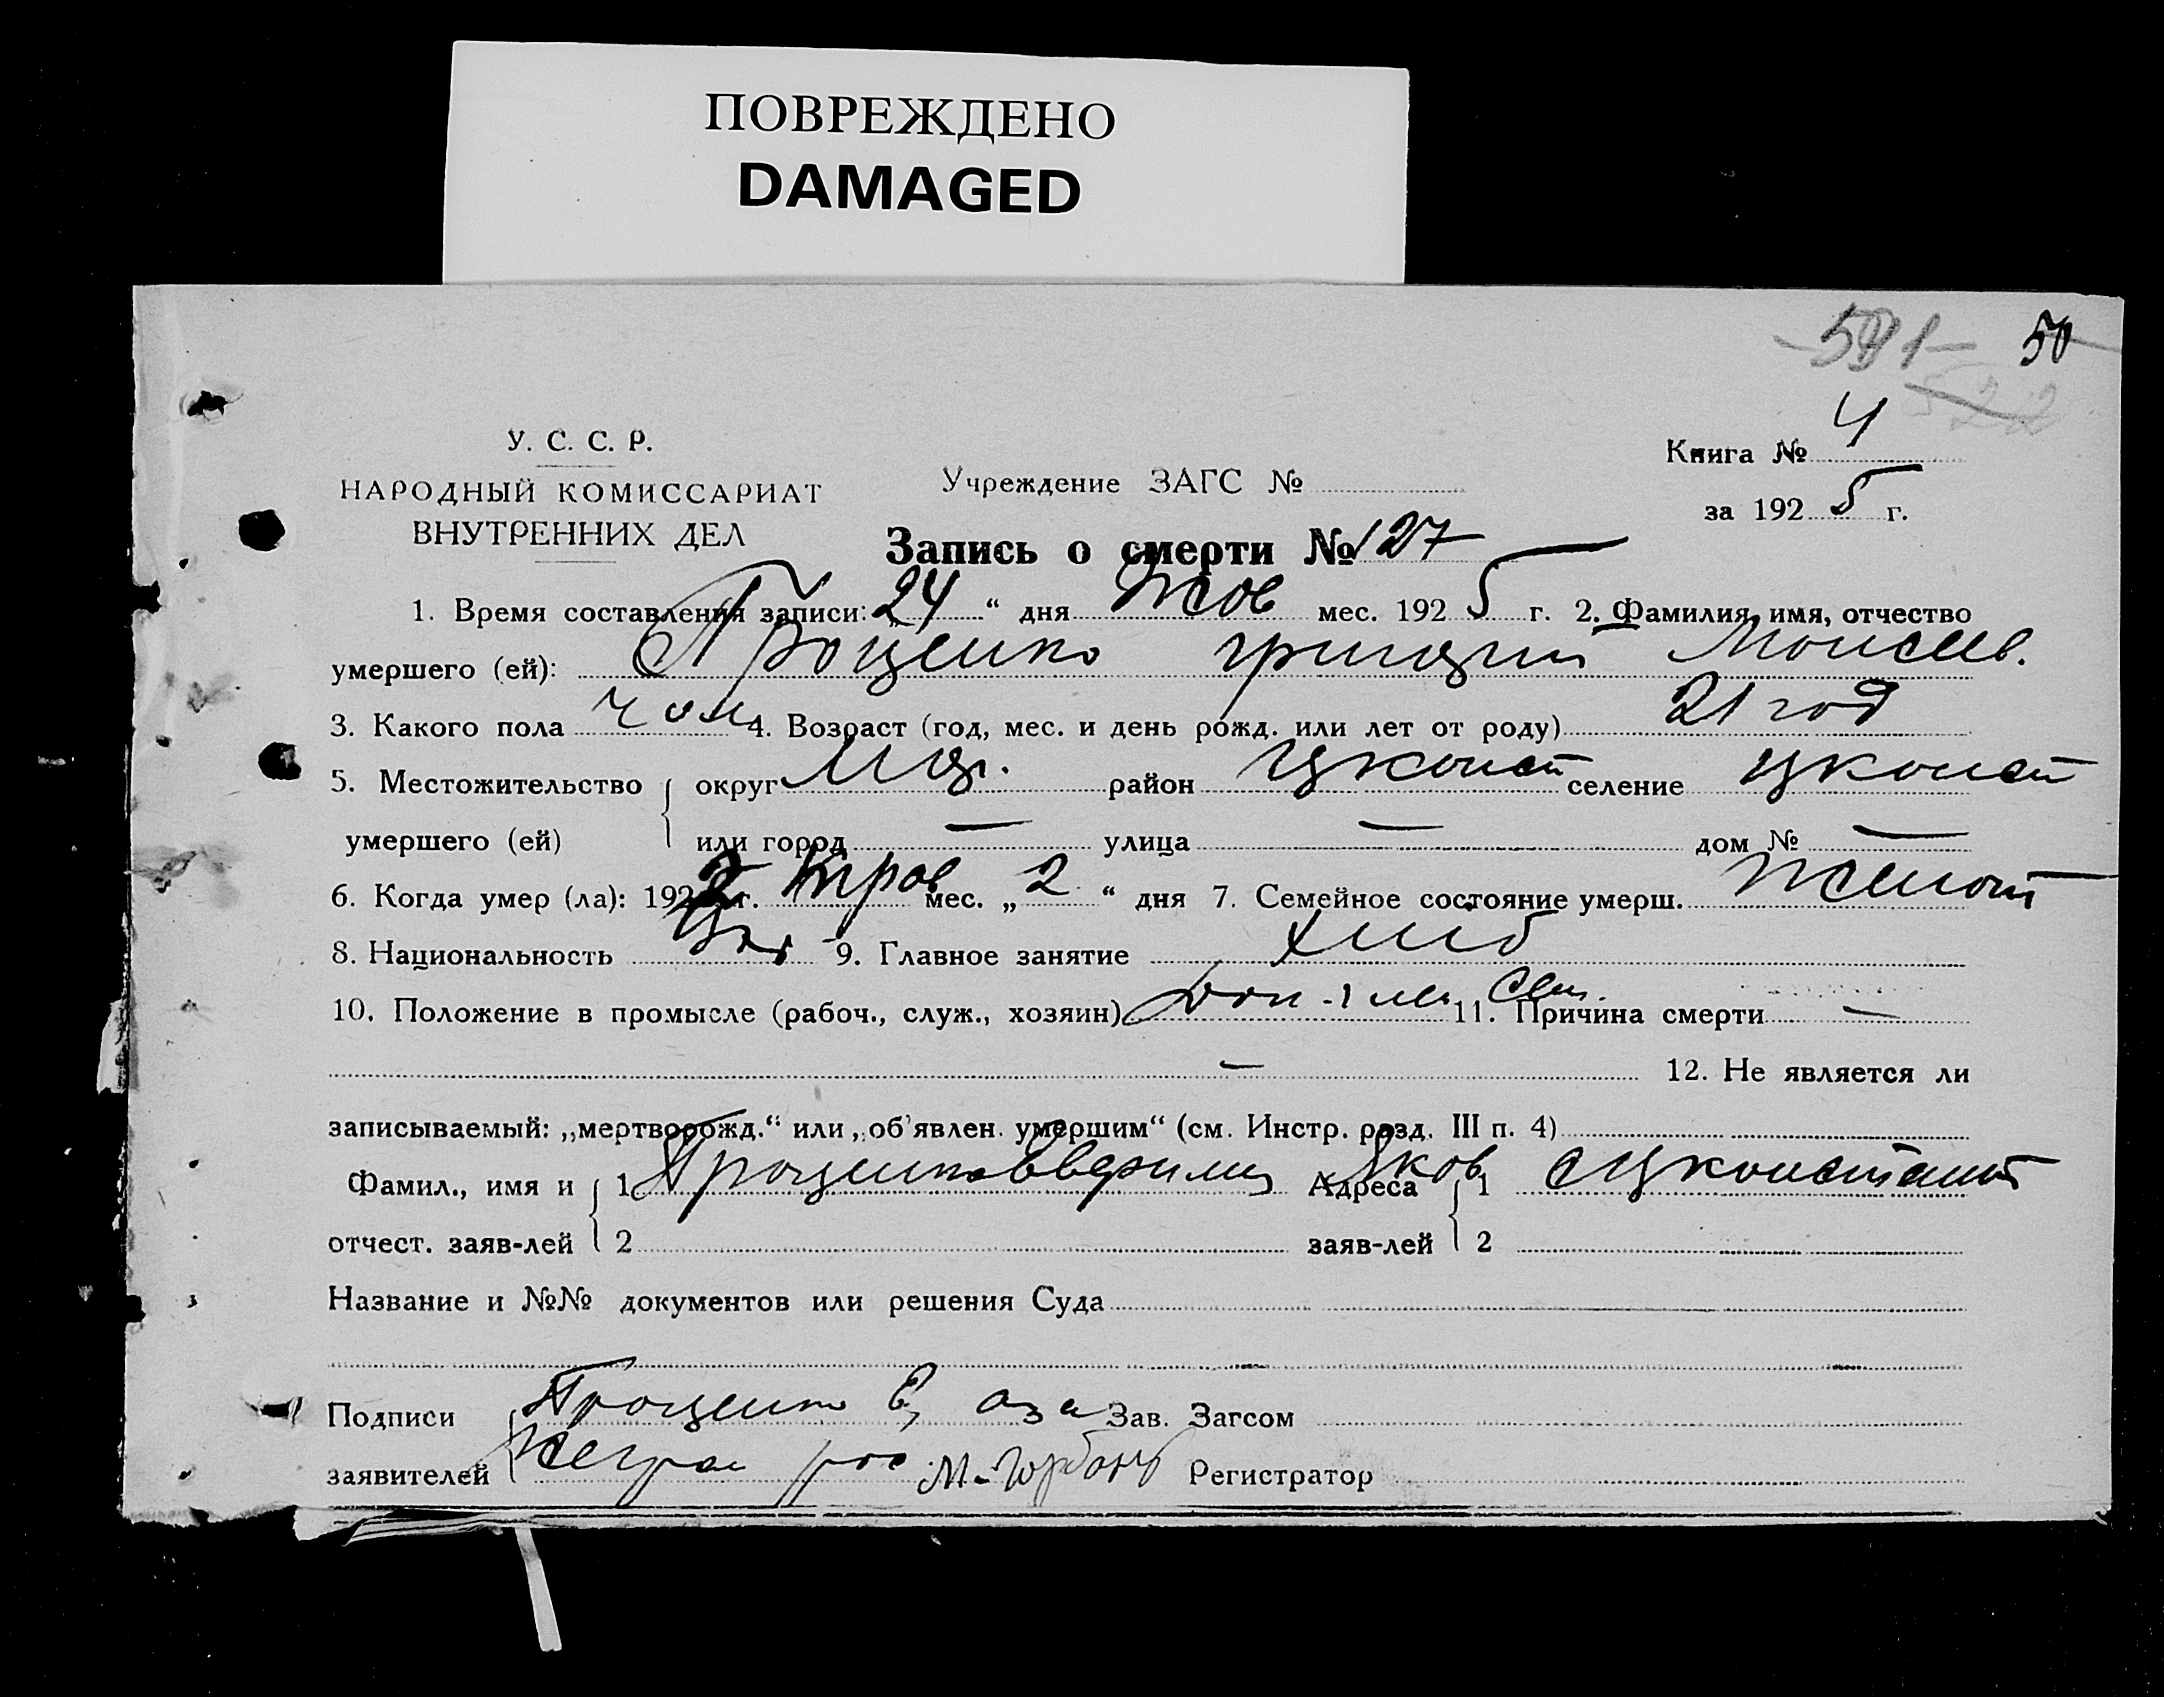 ПОВРЕЖДЕНО
DAMAGED
-591- 50
522
У. С. С. Р.
НАРОДНЫЙ КОМИССАРИАТ
ВНУТРЕННИХ ДЕЛ
Учреждение ЗАГС №
Книга № 4
за 1925 г.
Запись о смерти № 127
1. Время составления записи: „24“ дня Жов мес. 1925 г. 2. Фамилия, имя, отчество
умершего (ей): Проценко Григорий Моисеев.
3. Какого пола чол 4. Возраст (год, мес. и день рожд. или лет от роду) 21 год
5. Местожительство округ район селение
умершего (ей) или город — улица — дом № —
6. Когда умер (ла): 192 г. мес. „2“ дня 7. Семейное состояние умерш. женат
8. Национальность Укр 9. Главное занятие хлиб
10. Положение в промысле (рабоч., служ., хозяин) Доп. чле сем. 11. Причина смерти —
— 12. Не является ли
записываемый: „мертворожд.“ или „об'явлен. умершим“ (см. Инстр. разд. III п. 4)
Фамил., имя и 1 Проценко Яков Адреса 1
отчест. заяв-лей 2 заяв-лей 2
Название и №№ документов или решения Суда
Подписи Проценко Е, аза Зав. Загсом
заявителей М. Горбань Регистратор